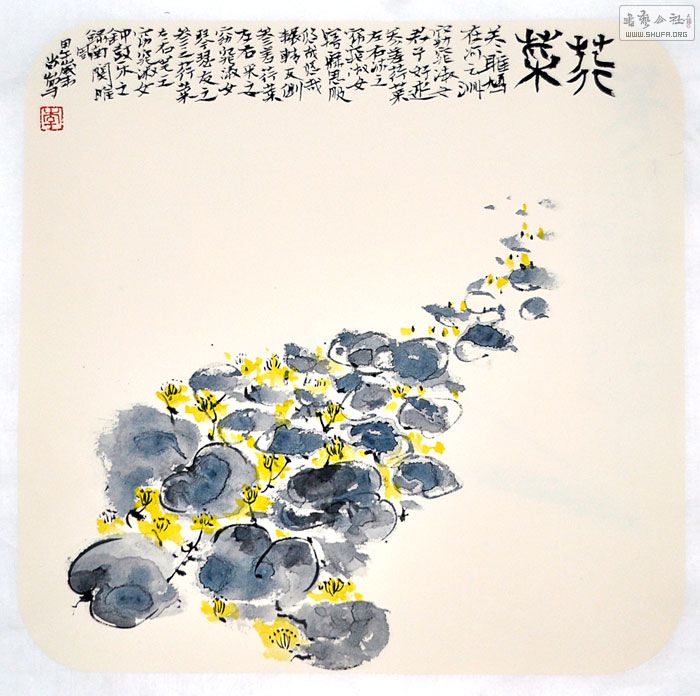 荇菜
关々雎鸠
在河之洲
窈窕淑女
君子好逑
参差荇菜
左右流之
窈窕淑女
寤寐思服
悠哉悠哉
辗转反侧
参差荇菜
左右采之
窈窕淑女
琴瑟友之
参差荇菜
左右芼之
窈窕淑女
钟鼓乐之
关雎
甲午岁末
李
书艺公社
WWW.SHUFA.ORG